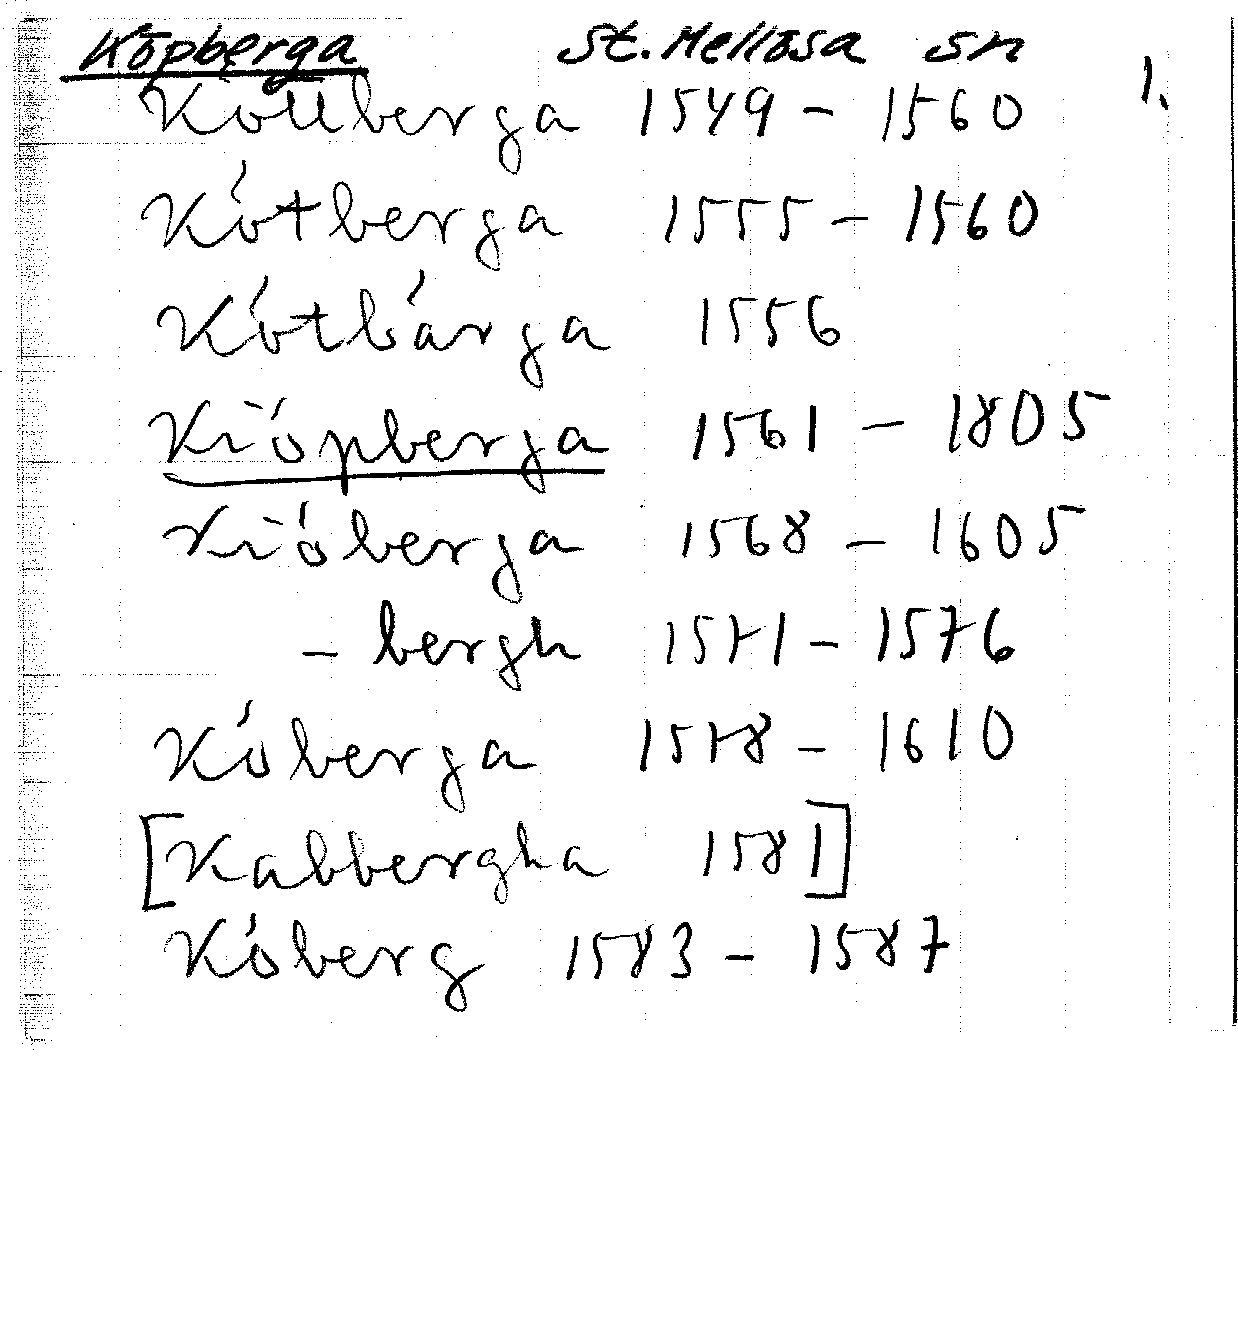 Köpberga St. Mellösa sn
1.
Kottberga 1549 - 1560
Kótberga 1555 - 1560
Kótbárga 1556
Kiópberga 1561 - 1805
Kióberga 1568 - 1605
- bergh 1571 - 1576
Kóberga 1578 - 1610
[Kabbergha 1581]
Kóberg 1583 - 1587